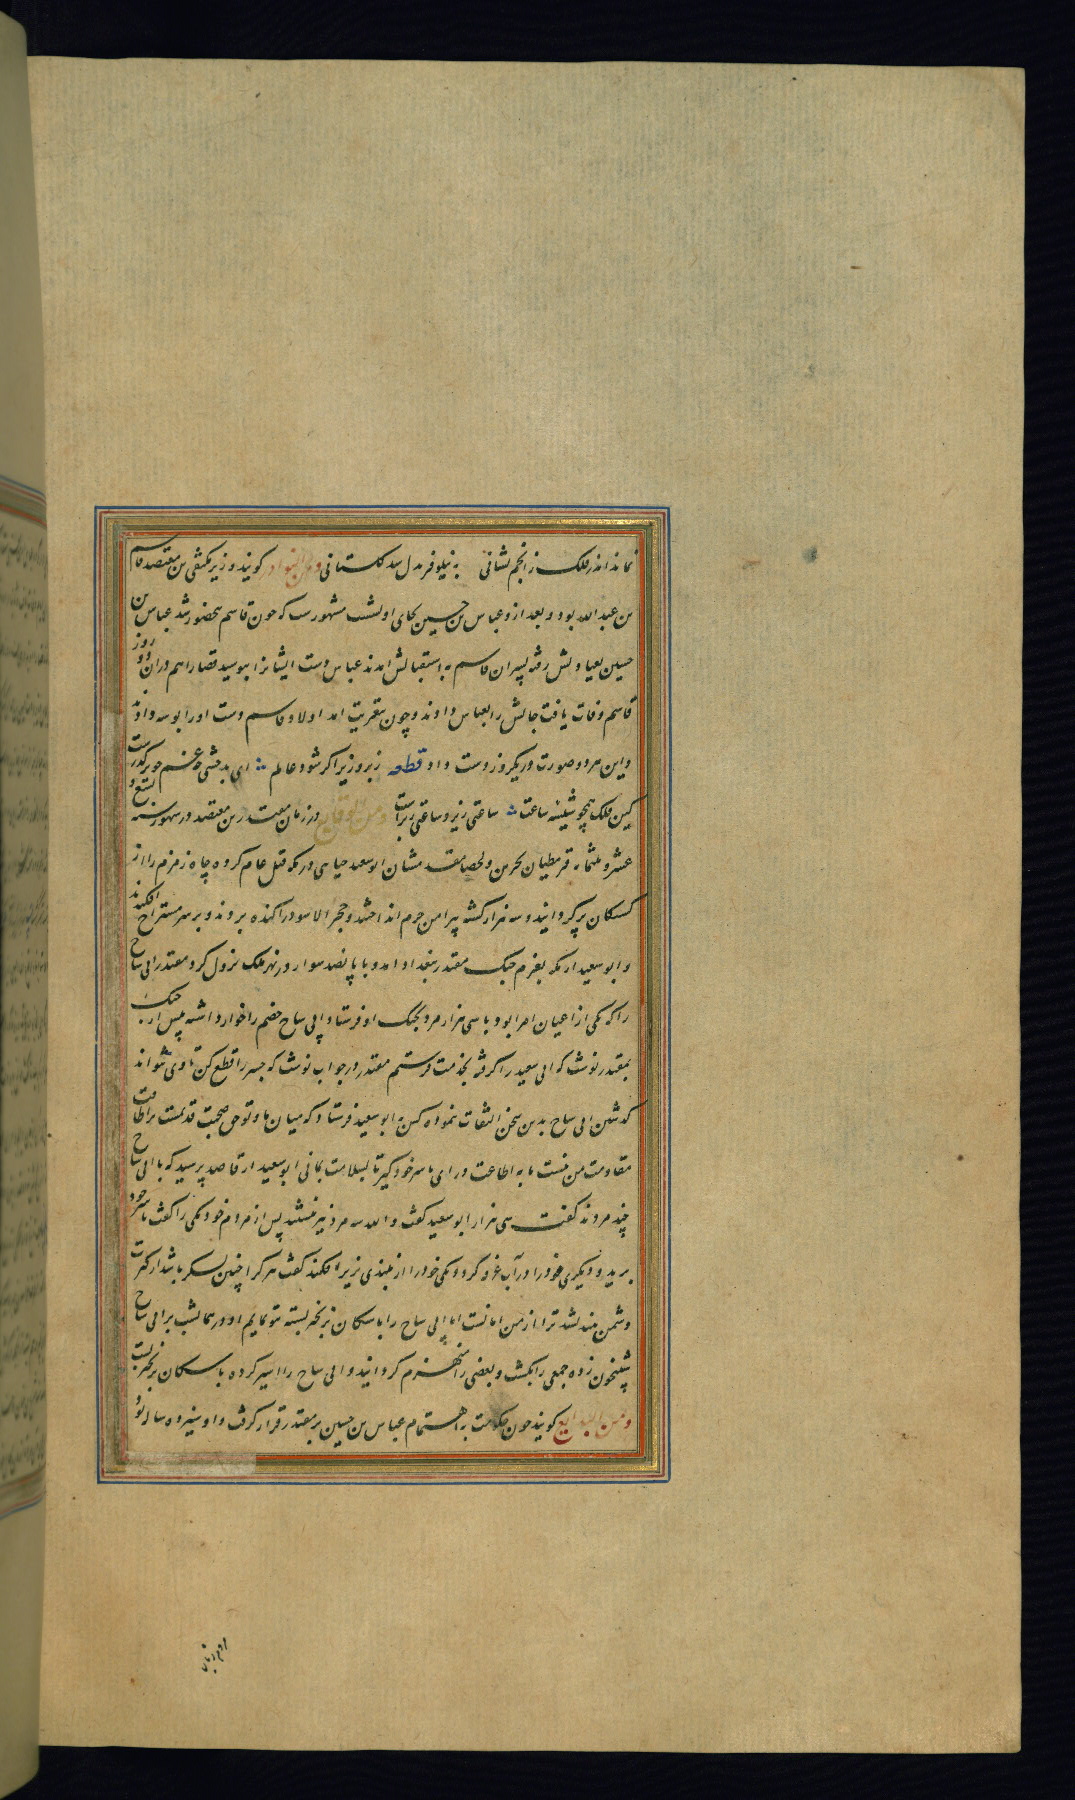 نماند اندر فلک ز انجم نشانی به نیلوفر بدل شد گلستانی ومن النوادر کویند وزیر مکتفی بن معتضد قاسم
بن عبد الله بود و بعد ازو عباس بن حسین بجای او نشست مشهورست که چون قاسم محضور شد عباس بن
حسین بعیادتش رفته پسران قاسم به استقبالش آمدند عباس دست ایشانرا ببوسید قضا را هم در ان دو روز
قاسم وفات یافت جایش را بعباس دادند و چون بتعزیت آمد اولاد قاسم دست او را بوسه دادند
و این هر دو صورت در یکروز دست داد قطعه زبر و زیر اگر شود عالم ای بدخشی چه غم چو برگذرست
کین فلک همچو شیشه ساعت ساعتی زیر و ساعتی زبراست ومن الوقایع در زمان مقتدر بن معتضد در شهور سنه تسع و
عشر و ثلثمائه قرمطیان بحرین ولحصا مقدمشان ابو سعید جنابی در مکه قتل عام کرده چاه زمزم را از
کشتکان پر گردانیدند و سه هزار کشته پیرامن حرم انداختند و حجر الاسود را کنده بردند و بر سر مستراح افکندند
و ابو سعید از مکه بعزم جنک مقتدر ببغداد آمد و با پانصد سوار در نهر ملک نزول کرد مقتدر ابی ساج
را که یکی از اعیان امرا بود با سی هزار مرد بجنک او فرستاد ابی ساج خصم را خوار داشته پیش از جنک
بمقتدر نوشت که ابی سعید را گرفته بخدمت فرستم مقتدر در جواب نوشت که جسر را قطع کن تا وی نتواند
گذشتن ابی ساج بدین سخن التفات ننموده کس به ابو سعید فرستاد که میان ما و تو حق صحبت قدیمست ترا طاقت
مقاومت من نیست یا به اطاعت در آی یا سر خود گیر تا بسلامت بمانی ابو سعید از قاصد پرسید که با ابی ساج
چند مردند گفت سی هزار ابو سعید گفت والله سه مرد نیز نیستند پس از مردم خود یکی را گفت تا سر خود
برید و دیگری خود را در آب غرق کرد و یکی خود را از بلندی زیر افکند گفت هر کرا چنین لشکر باشد از کثرت
دشمن نیندیشد ترا از من امانست اما ابی ساج را با سکان بزنجیر بسته بتو نمایم او در همان شب بر ابی ساج
شبیخون زده جمعی را بکشت و بعضی را منهزم گردانید و ابی ساج را اسیر کرده با سکان بزنجیر بست
ومن البدایع کویند چون حکومت به اهتمام عباس بن حسین بر مقتدر قرار گرفت و او سیزده ساله بود